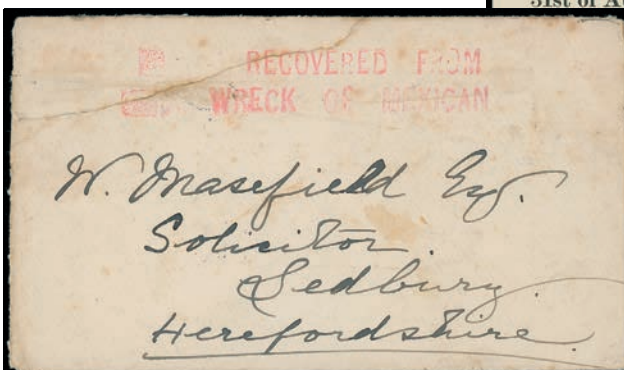 31st of Au
RECOVERED FROM
WRECK OF MEXICAN
W. Masefield Esq.
Solicitor.
Ledbury.
Herefordshire.